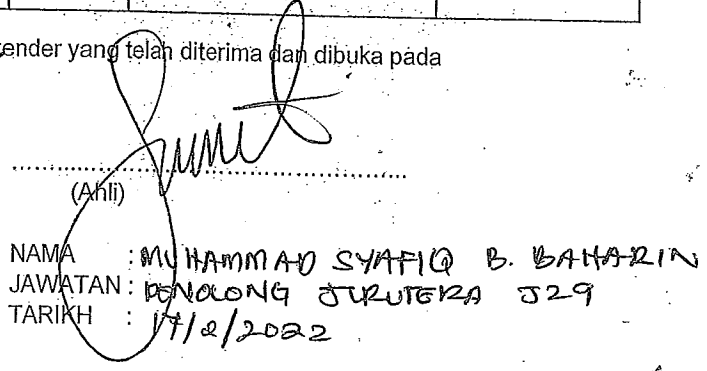 tender yang telah diterima dan dibuka pada
(Ahli)
NAMA : MUHAMMAD SYAFIQ B. BAHARIN
JAWATAN : PENOLONG JURUTERA J29
TARIKH : 17/2/2022